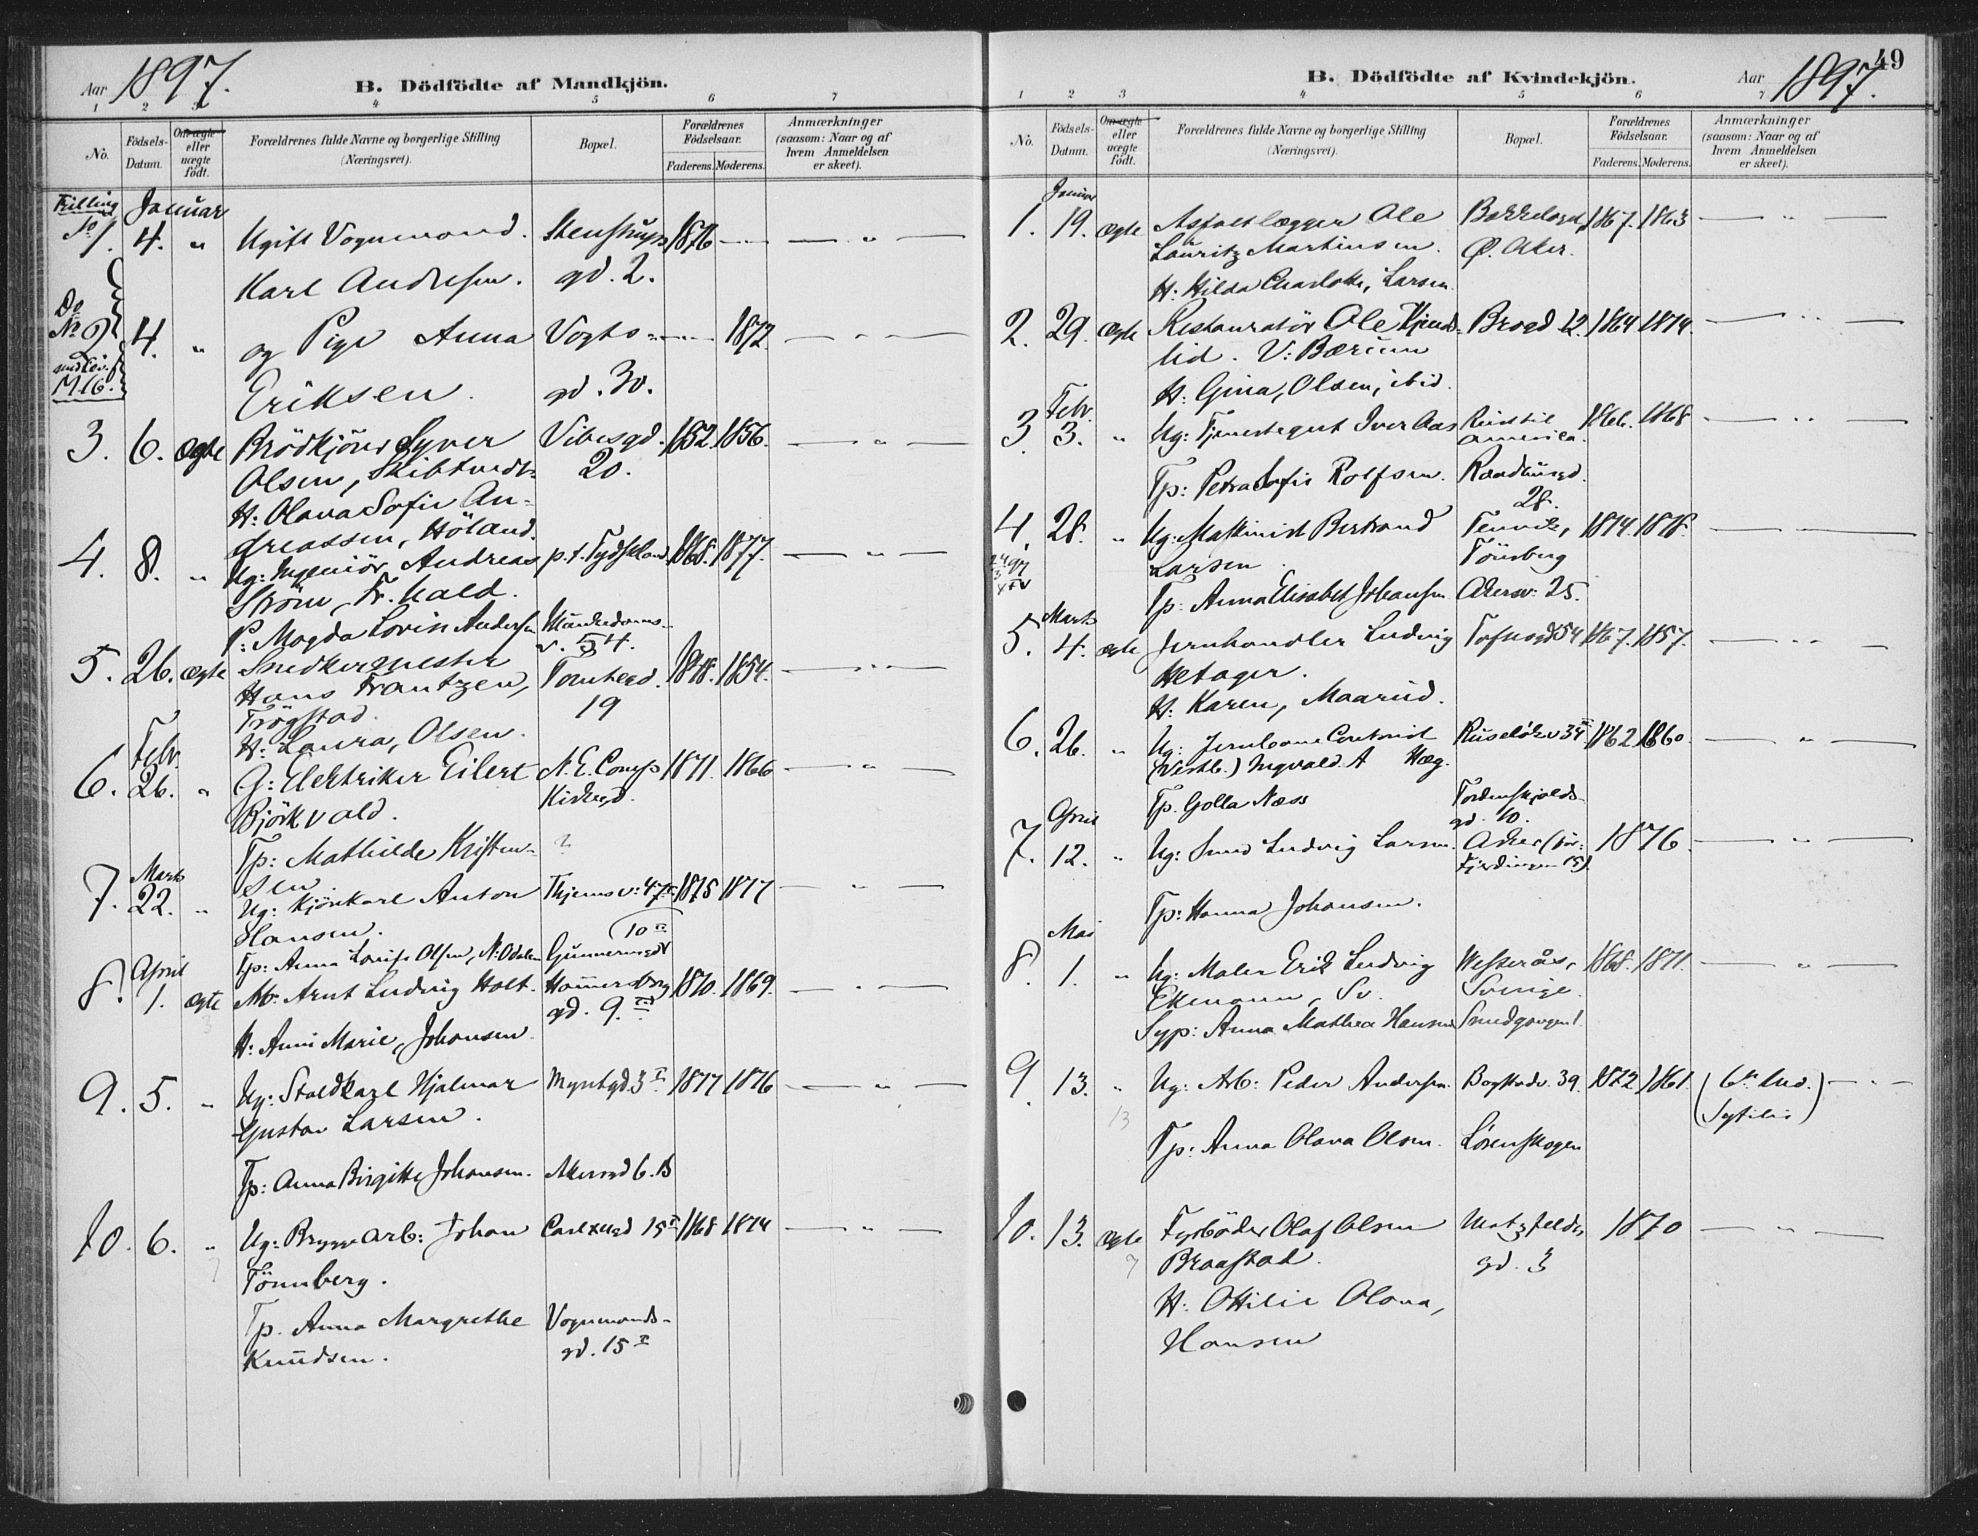 Aar 1897.
B. Dödfödte af Mandkjön.
1 2 3 4 5 6 7
No.
Födsels-Datum.
Om ægte eller uægte födt.
Forældrenes fulde Navne og borgerlige Stilling (Næringsvei).
Bopæl.
Forældrenes Födselsaar.
Faderens. Moderens.
Anmærkninger (saasom: Naar og af hvem Anmeldelsen er skeet).
Trilling Januar
No 1. 4. " Ugift Vognmand Stenstrups 1876 — — " —
Karl Andresen. gd. 2.
Do
No 2 4. " og Pige Anna Vogts — 1872. — " —
Eriksen gd. 30.
3. 6. ægte Brödkjörer Syver Vibesgd. 1852. 1856. — " —
Olsen, 20.
H: Olava Sofie An-
dreassen, Höland.
4. 8. " Ug: Ingeniör Andreas p.t. Tydskland 1868. 1877. — " —
Ström, Fr.hald.
P: Magda Lovise Andersen Munkedams-
v. 54.
5. 26. ægte Snedkermester Tomtegd. 1848. 1854. — " —
Hans Frantzen, 19
Trögstad.
H: Laura, Olsen.
Febr.
6. 26. " G: Elektriker Eilert N. E. Comp 1871. 1866 — " —
Björkvald. Kirkegd.
Tp: Mathilde Kristen- ?
sen
Marts
7. 22. " Ug: Kjörekarl Anton Thjemsv: 47 1875 1877 — " —
Hansen.
Tp: Anna Lovise Olsen, N. Odalen
April
8. 1. ægte Arnt Ludvig Holt. Hammerborg 1870. 1869. — " —
gd. 9.
H: Anne Marie, Johansen.
9. 5. " Ug: Staldkarl Hjalmar Myntgd. 3 I 1877 1876 — " —
Gustav Larsen.
Tp: Anna Birgitte Johansen. Akersgd 6. B
10. 6. " Ug: Bryggearb: Johan Carl XII gd 15 I 1868 1874 — " —
Tönnberg.
Tp. Anna Margrethe Vognmands-
Knudsen. gd. 15 I
49
B. Dödfödte af Kvindekjön.
Aar 1897.
1 2 3 4 5 6 7
No.
Födsels-Datum.
Om ægte eller uægte födt.
Forældrenes fulde Navne og borgerlige Stilling (Næringsvei).
Bopæl.
Forældrenes Födselsaar.
Faderens. Moderens.
Anmærkninger (saasom: Naar og af hvem Anmeldelsen er skeet).
Januar
1. 19. ægte Asfaltlægger Ole 1867. 1863 — " —
Lauritz Martinsen. Ø. Aker.
H: Hilda Charlotte, Larsen
2. 29. ægte Restauratör Ole Brogd 12. 1864 1874. — " —
lid. V: Bærum
H: Gina, Olsen, ibid.
Febr.
3. 3. " Ug: Tjenestegut Iver Aas Reist til 1866. 1868 — " —
Amerika.
Tp: Petra Sofie Rolfsen. 28.
4. 28. " Ug: Maskinist Bertrand 1874. 1878. — " —
Larsen Tönsberg
Tp: Anna Elisabet Johansen Akersv: 25.
Marts
5. 4. ægte Jernhandler Ludvig Toftesgd 54 1867. 1857. — " —
Hetager.
H: Karen, Maarud.
6. 26. " Ug: Jernbane Contorist Ruselökv 34 1862 1860 — " —
(Vestb.) Ingvald A Hæg.
Tp. Golla Næss Tordenskjolds-
gd. 10.
April
7. 12. " Ug: Smed Ludvig Larsen. Aker 1876 — " —
Tp: Hanna Johansen.
Mai
8. 1. " Ug: Maler Erik Ludvig Westerås, 1868. 1871. — " —
Ekmann, Sv. Sverige.
Syp: Anna Mathea Hansen Smedgangen 1
9. 13. " Ug: Arb: Peder Andersen. Bogstadv. 39. 1872. 1861 (6te — " —
Syfilis)
13
Tp: Anna Olava Olsen. Lörenskogen
10. 13. ægte Fyrböder Olaf Olsen Motzfeldts 1870 — " —
Braastad. gd. 3
H: Ottilie Olava,
Hansen